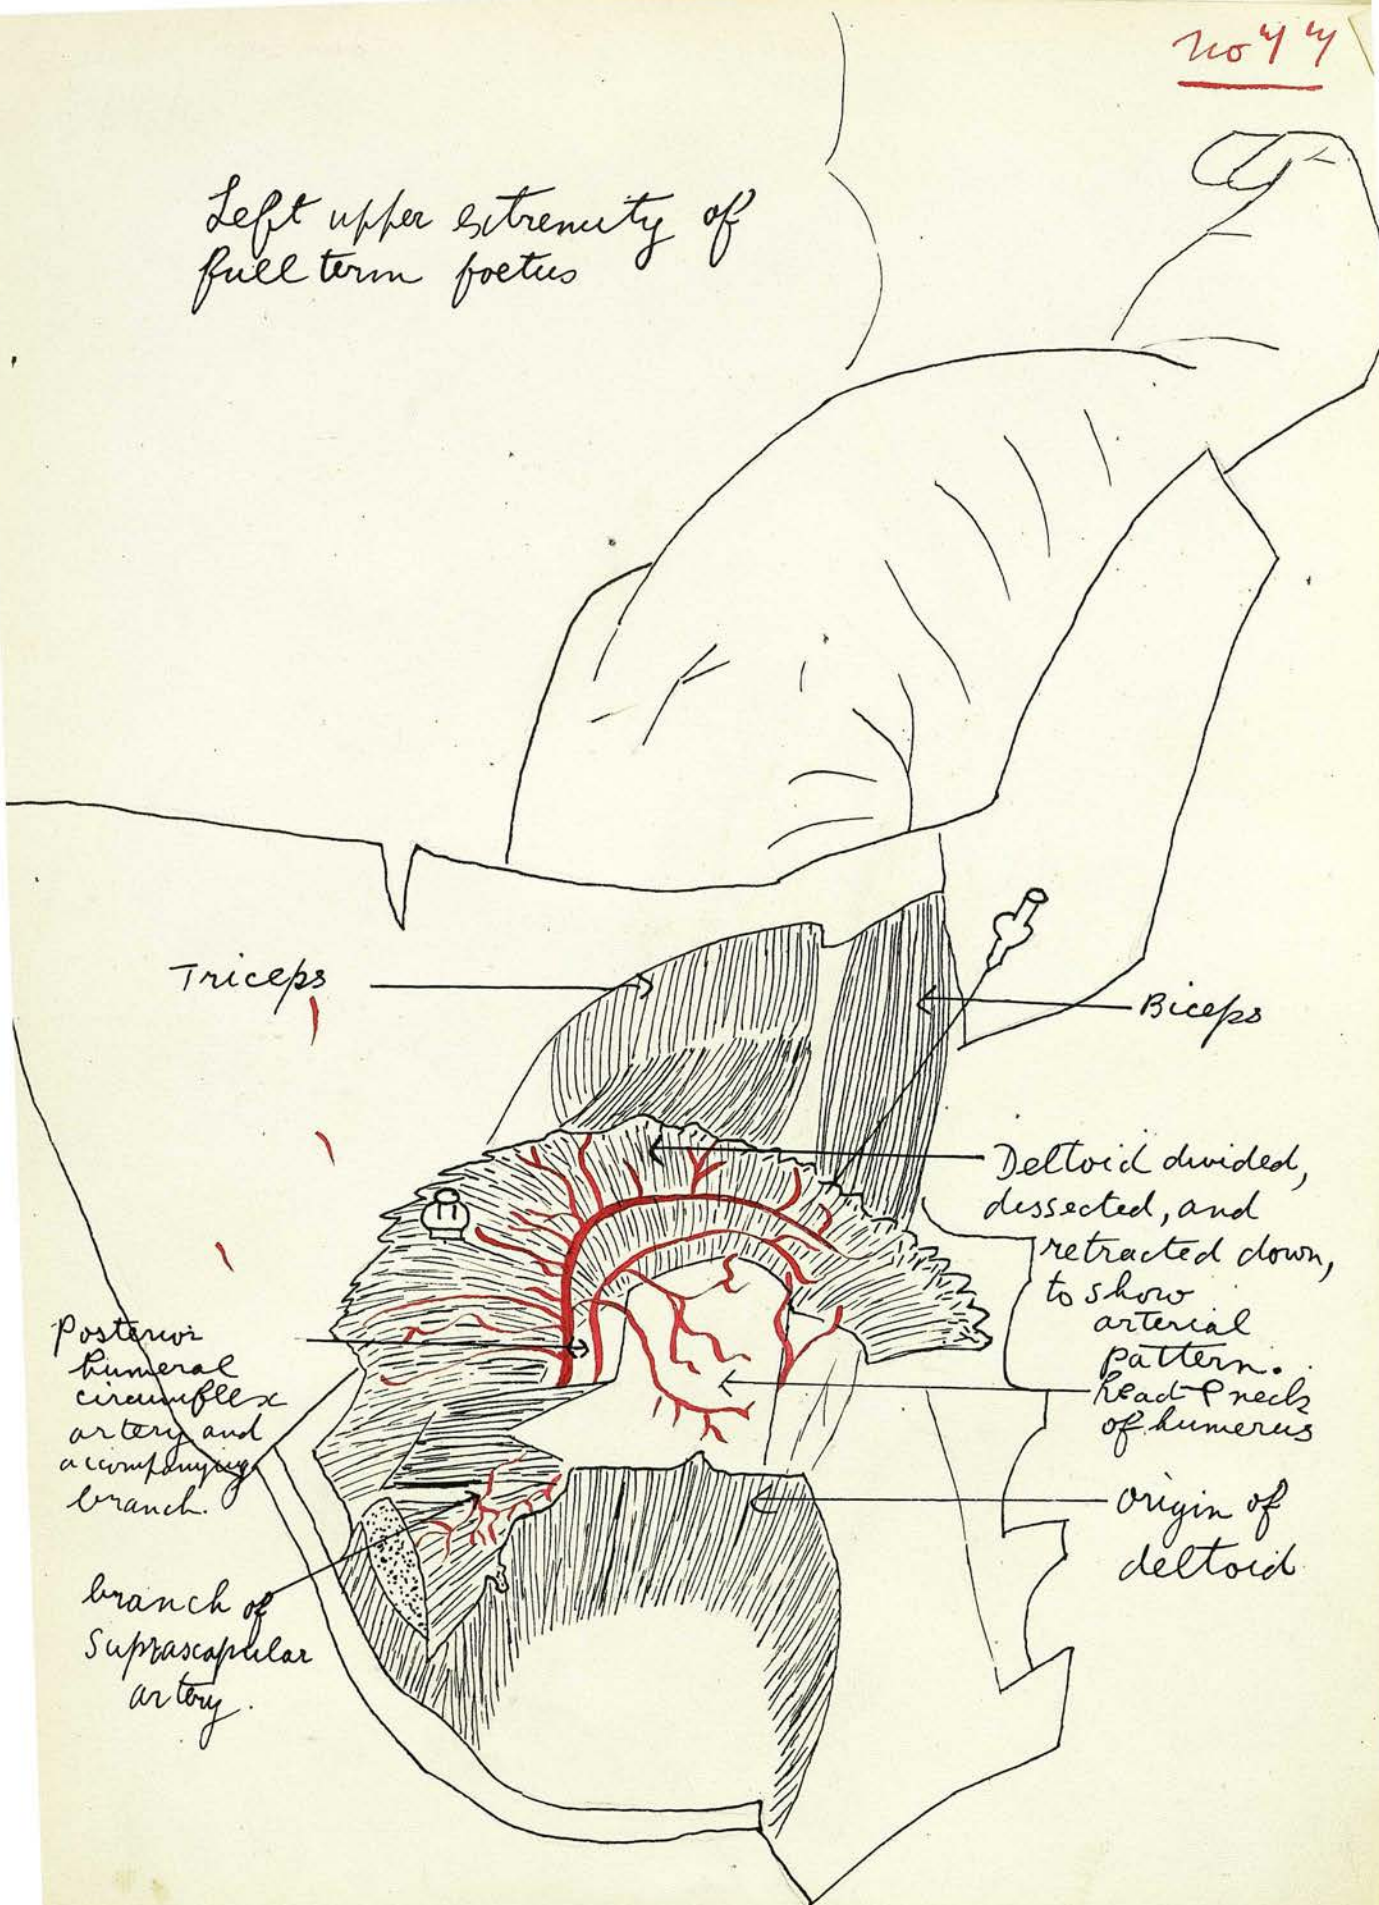 no 44
Left upper extremity of
full term foetus
Triceps
Biceps
Deltoid divided,
dissected, and
retracted down,
to show
arterial
pattern.
head & neck
of humerus
Posterior
humeral
circumflex
artery and
accompanying
branch.
origin of
deltoid
branch of
suprascapular
artery.